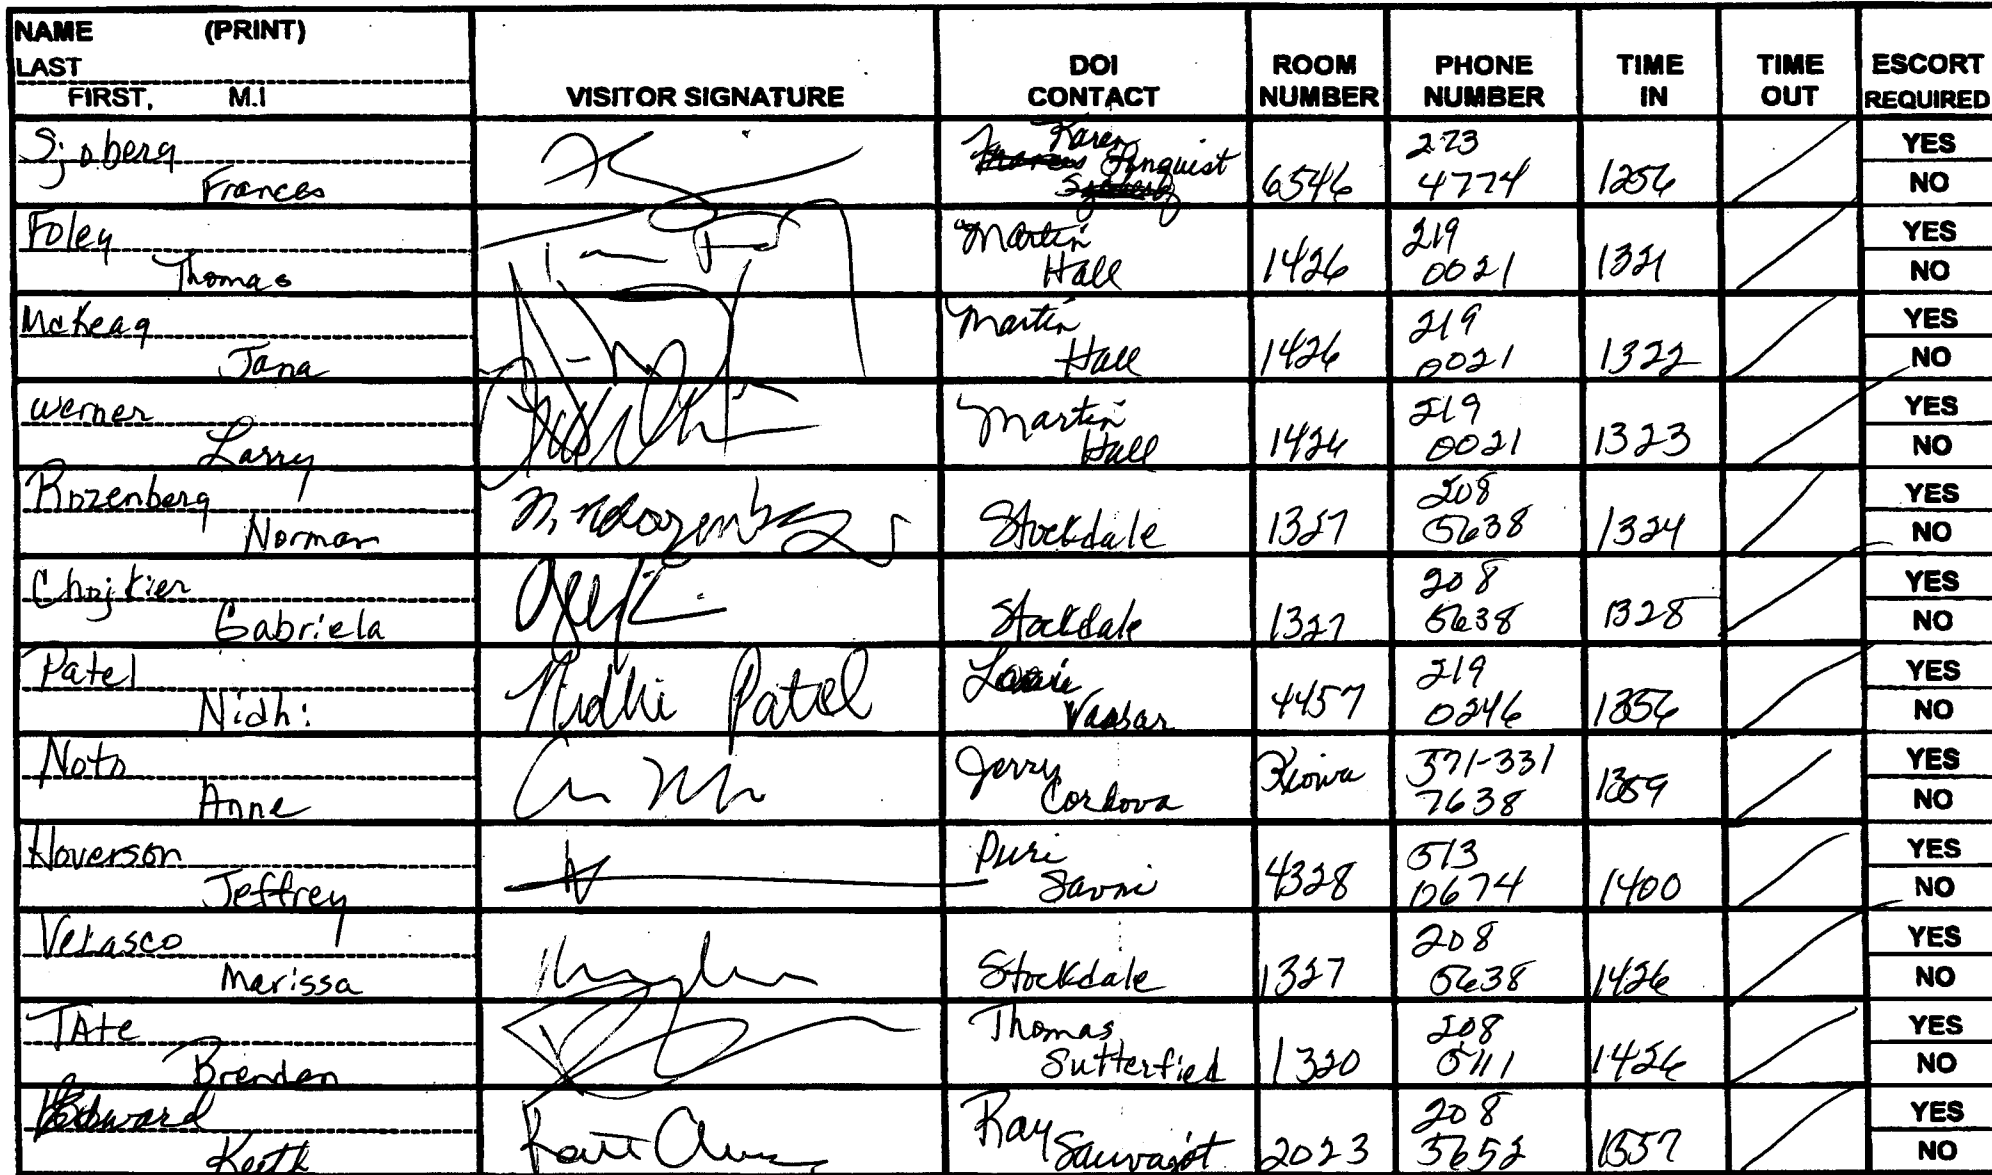 NAME (PRINT)
LAST
FIRST, M.I
VISITOR SIGNATURE
DOI CONTACT
ROOM NUMBER
PHONE NUMBER
TIME IN
TIME OUT
ESCORT REQUIRED
Sjoberg
Frances
Karen
6546
273
4774
1256
YES
NO
Foley
Thomas
Martin
Hall
1426
219
0021
1321
YES
NO
McKeag
Jana
Martin
Hall
1426
219
0021
1322
YES
NO
Werner
Larry
Martin
Hall
1426
219
0021
1323
YES
NO
Rozenberg
Norman
Stockdale
1327
208
5638
1324
YES
NO
Gabriela
Stockdale
1327
208
5638
1328
YES
NO
Patel
Nidhi
Nidhi Patel
4457
219
0246
1356
YES
NO
Noto
Anne
Jerry
Cordova
Kiowa
571-331
7638
1359
YES
NO
Hoverson
Jeffrey
Puri
4328
513
0674
1400
YES
NO
Velasco
Marissa
Stockdale
1327
208
5638
1426
YES
NO
TAte
Brenden
Thomas
Sutterfied
1320
208
5111
1426
YES
NO
Keith
Ray
Sauvajot
2023
208
3652
1357
YES
NO